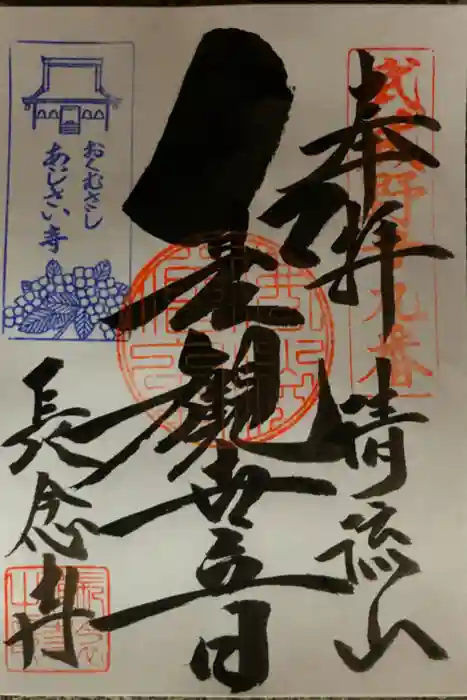 武蔵野廿九番
奉拝
清流山
聖観世音
おくむさし
あじさい寺
長念寺